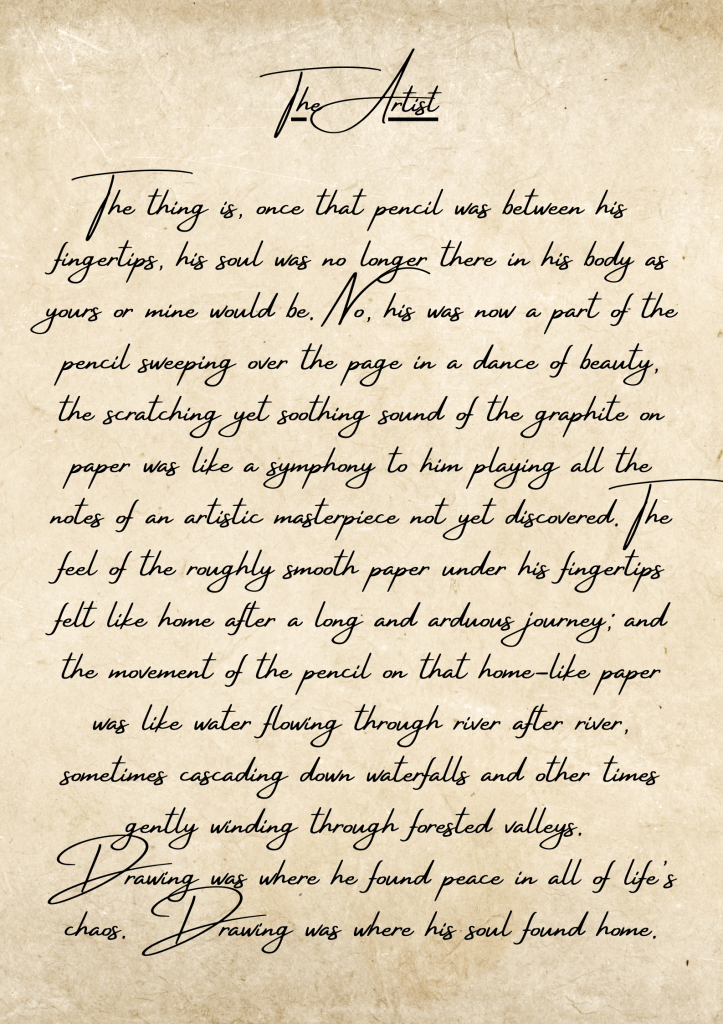 The Artist
The thing is, once that pencil was between his
fingertips, his soul was no longer there in his body as
yours or mine would be. No, his was now a part of the
pencil sweeping over the page in a dance of beauty,
the scratching yet soothing sound of the graphite on
paper was like a symphony to him playing all the
notes of an artistic masterpiece not yet discovered. The
feel of the roughly smooth paper under his fingertips
felt like home after a long and arduous journey; and
the movement of the pencil on that home-like paper
was like water flowing through river after river,
sometimes cascading down waterfalls and other times
gently winding through forested valleys.
Drawing was where he found peace in all of life's
chaos. Drawing was where his soul found home.